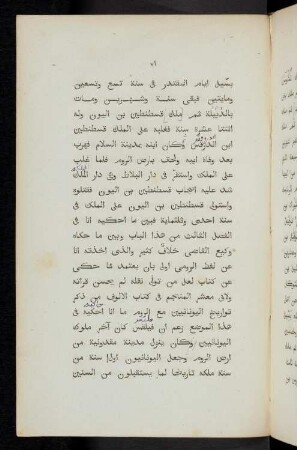 ٧٦
بشهيل ايام المقتدر فى سنة تسع وتسعين
ومايتين فبقى سنة وشهرين ومات
بالدبيلة ثم ملك قسطنطين بن اليون وله
اثنتا عشرة سنة فغلبه على الملك قسطنطين
ابن الدوقس وكان ابنه بمدينة السلام فهرب
بعد وفاة ابيه واحف بارض الروم فلما غلب
على الملك واستقر فى دار البلاط وهى دار الملك
شد عليه اصحاب قسطنطين بن اليون فقتلوه
واستولى قسطنطين بن اليون على الملك فى
سنة احدى وثلثماية فبين ما احكيه انا فى
الفصل الثالث من هذا الباب وبين ما حكاه
وكيع القاضى خلاف كثير والذى اخذته انا
عن لفظ الرومى اولى بان يعتمد مما حكى
عن كتاب لعل من تولى نقله لم يحسن قراته
ولابى معشر المنجم فى كتاب الالوف من ذكر
تواريخ اليونانيين مع الروم ما انا احكيه فى
هذا الموضع زعم ان فيلفس كان آخر ملوك
اليونانيين وكان ينزل مدينة مقدونية من
ارض الروم وجعل اليونانيون اول سنة من
سنة ملكه تاريخا لما يستقبلون من السنين